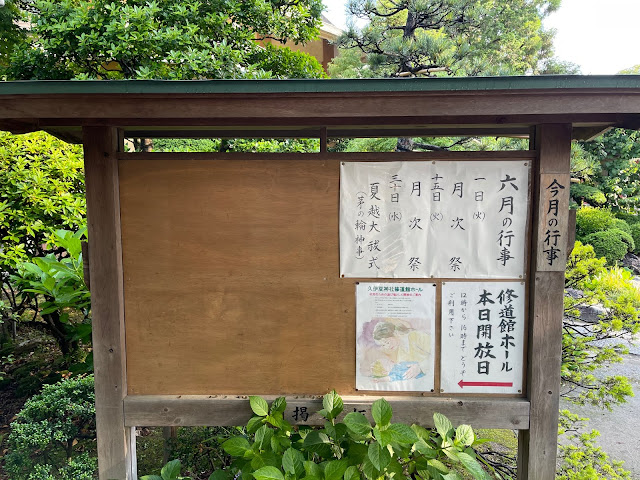 今月の行事
六月の行事
一日(火)
月次祭
十五日(火)
月次祭
三十日(水)
夏越大祓式
(茅の輪神事)
修道館ホール
本日開放日
ご利用下さい
掲